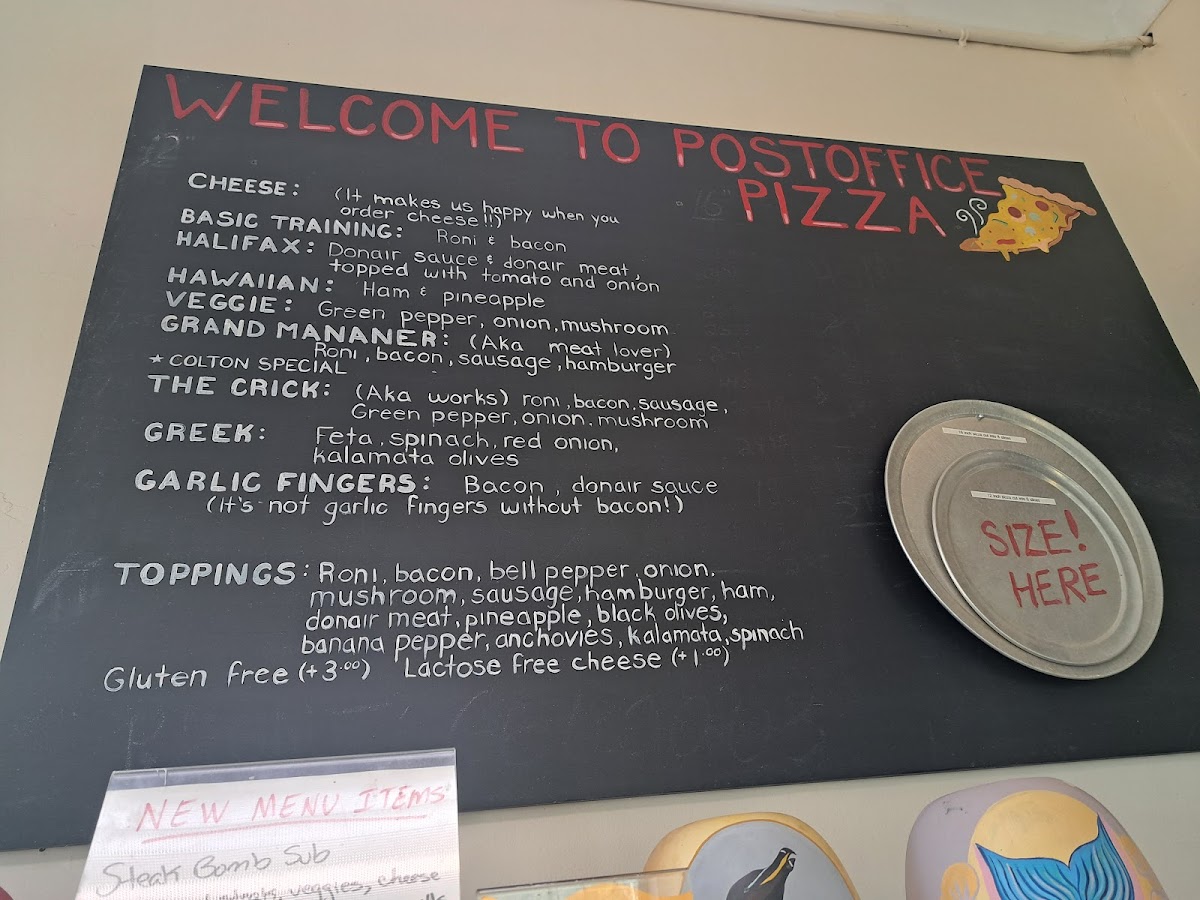 WELCOME TO POSTOFFICE
PIZZA
12"
16"
CHEESE: (It makes us happy when you
order cheese!!)
BASIC TRAINING: Roni & bacon
HALIFAX: Donair sauce & donair meat,
topped with tomato and onion
HAWAIIAN: Ham & pineapple
VEGGIE: Green pepper, onion, mushroom
GRAND MANANER: (Aka meat lover)
Roni, bacon, sausage, hamburger
* COLTON SPECIAL
THE CRICK: (Aka works) roni, bacon, sausage,
Green pepper, onion, mushroom
GREEK: Feta, spinach, red onion,
kalamata olives
GARLIC FINGERS: Bacon, donair sauce
(It's not garlic fingers without bacon!)
TOPPINGS: Roni, bacon, bell pepper, onion,
mushroom, sausage, hamburger, ham,
donair meat, pineapple, black olives,
banana pepper, anchovies, kalamata, spinach
Gluten free (+3.00) Lactose free cheese (+1.00)
SIZE!
HERE
NEW MENU ITEMS:
Steak Bomb Sub
veggies, cheese